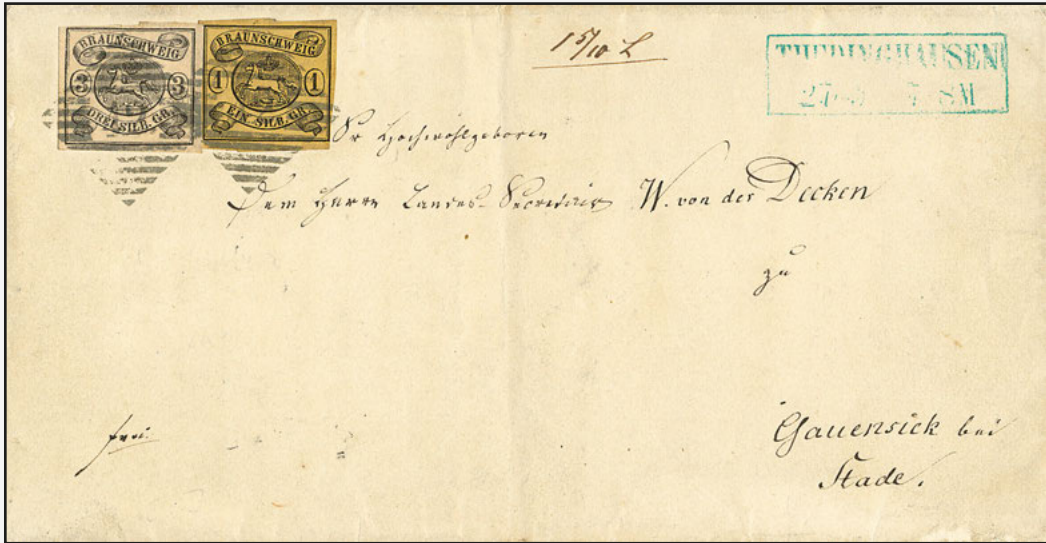 BRAUNSCHWEIG
3 3
DREI SILB. GR.
BRAUNSCHWEIG
1 1
EIN SILB. GR.
1 5/10 L
THEDINGHAUSEN
Sr Hochwohlgeboren
Dem Herrn Landes-Secretair W. von der Decken
zu
frei
Gauensiek bei
Stade.